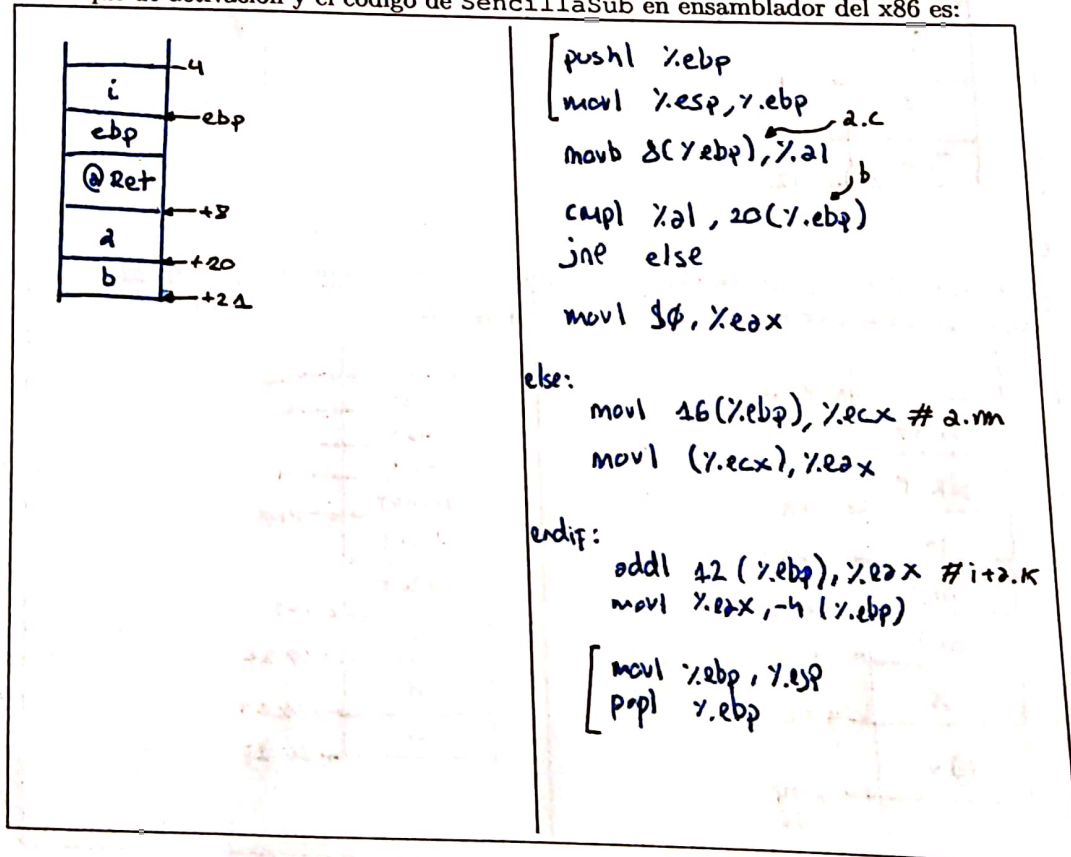 de activación y el código de SencillaSub en ensamblador del x86 es:
-4
i
ebp
ebp
@Ret
+8
a
+20
b
+21
pushl %ebp
movl %esp, %ebp
a.c
movb 8(%ebp), %al
b
cmpl %al, 20(%ebp)
jne else
movl $0, %eax
else:
movl 16(%ebp), %ecx # a.m
movl (%ecx), %eax
endif:
addl 12(%ebp), %eax # i+a.k
movl %eax, -4(%ebp)
movl %ebp, %esp
popl %ebp